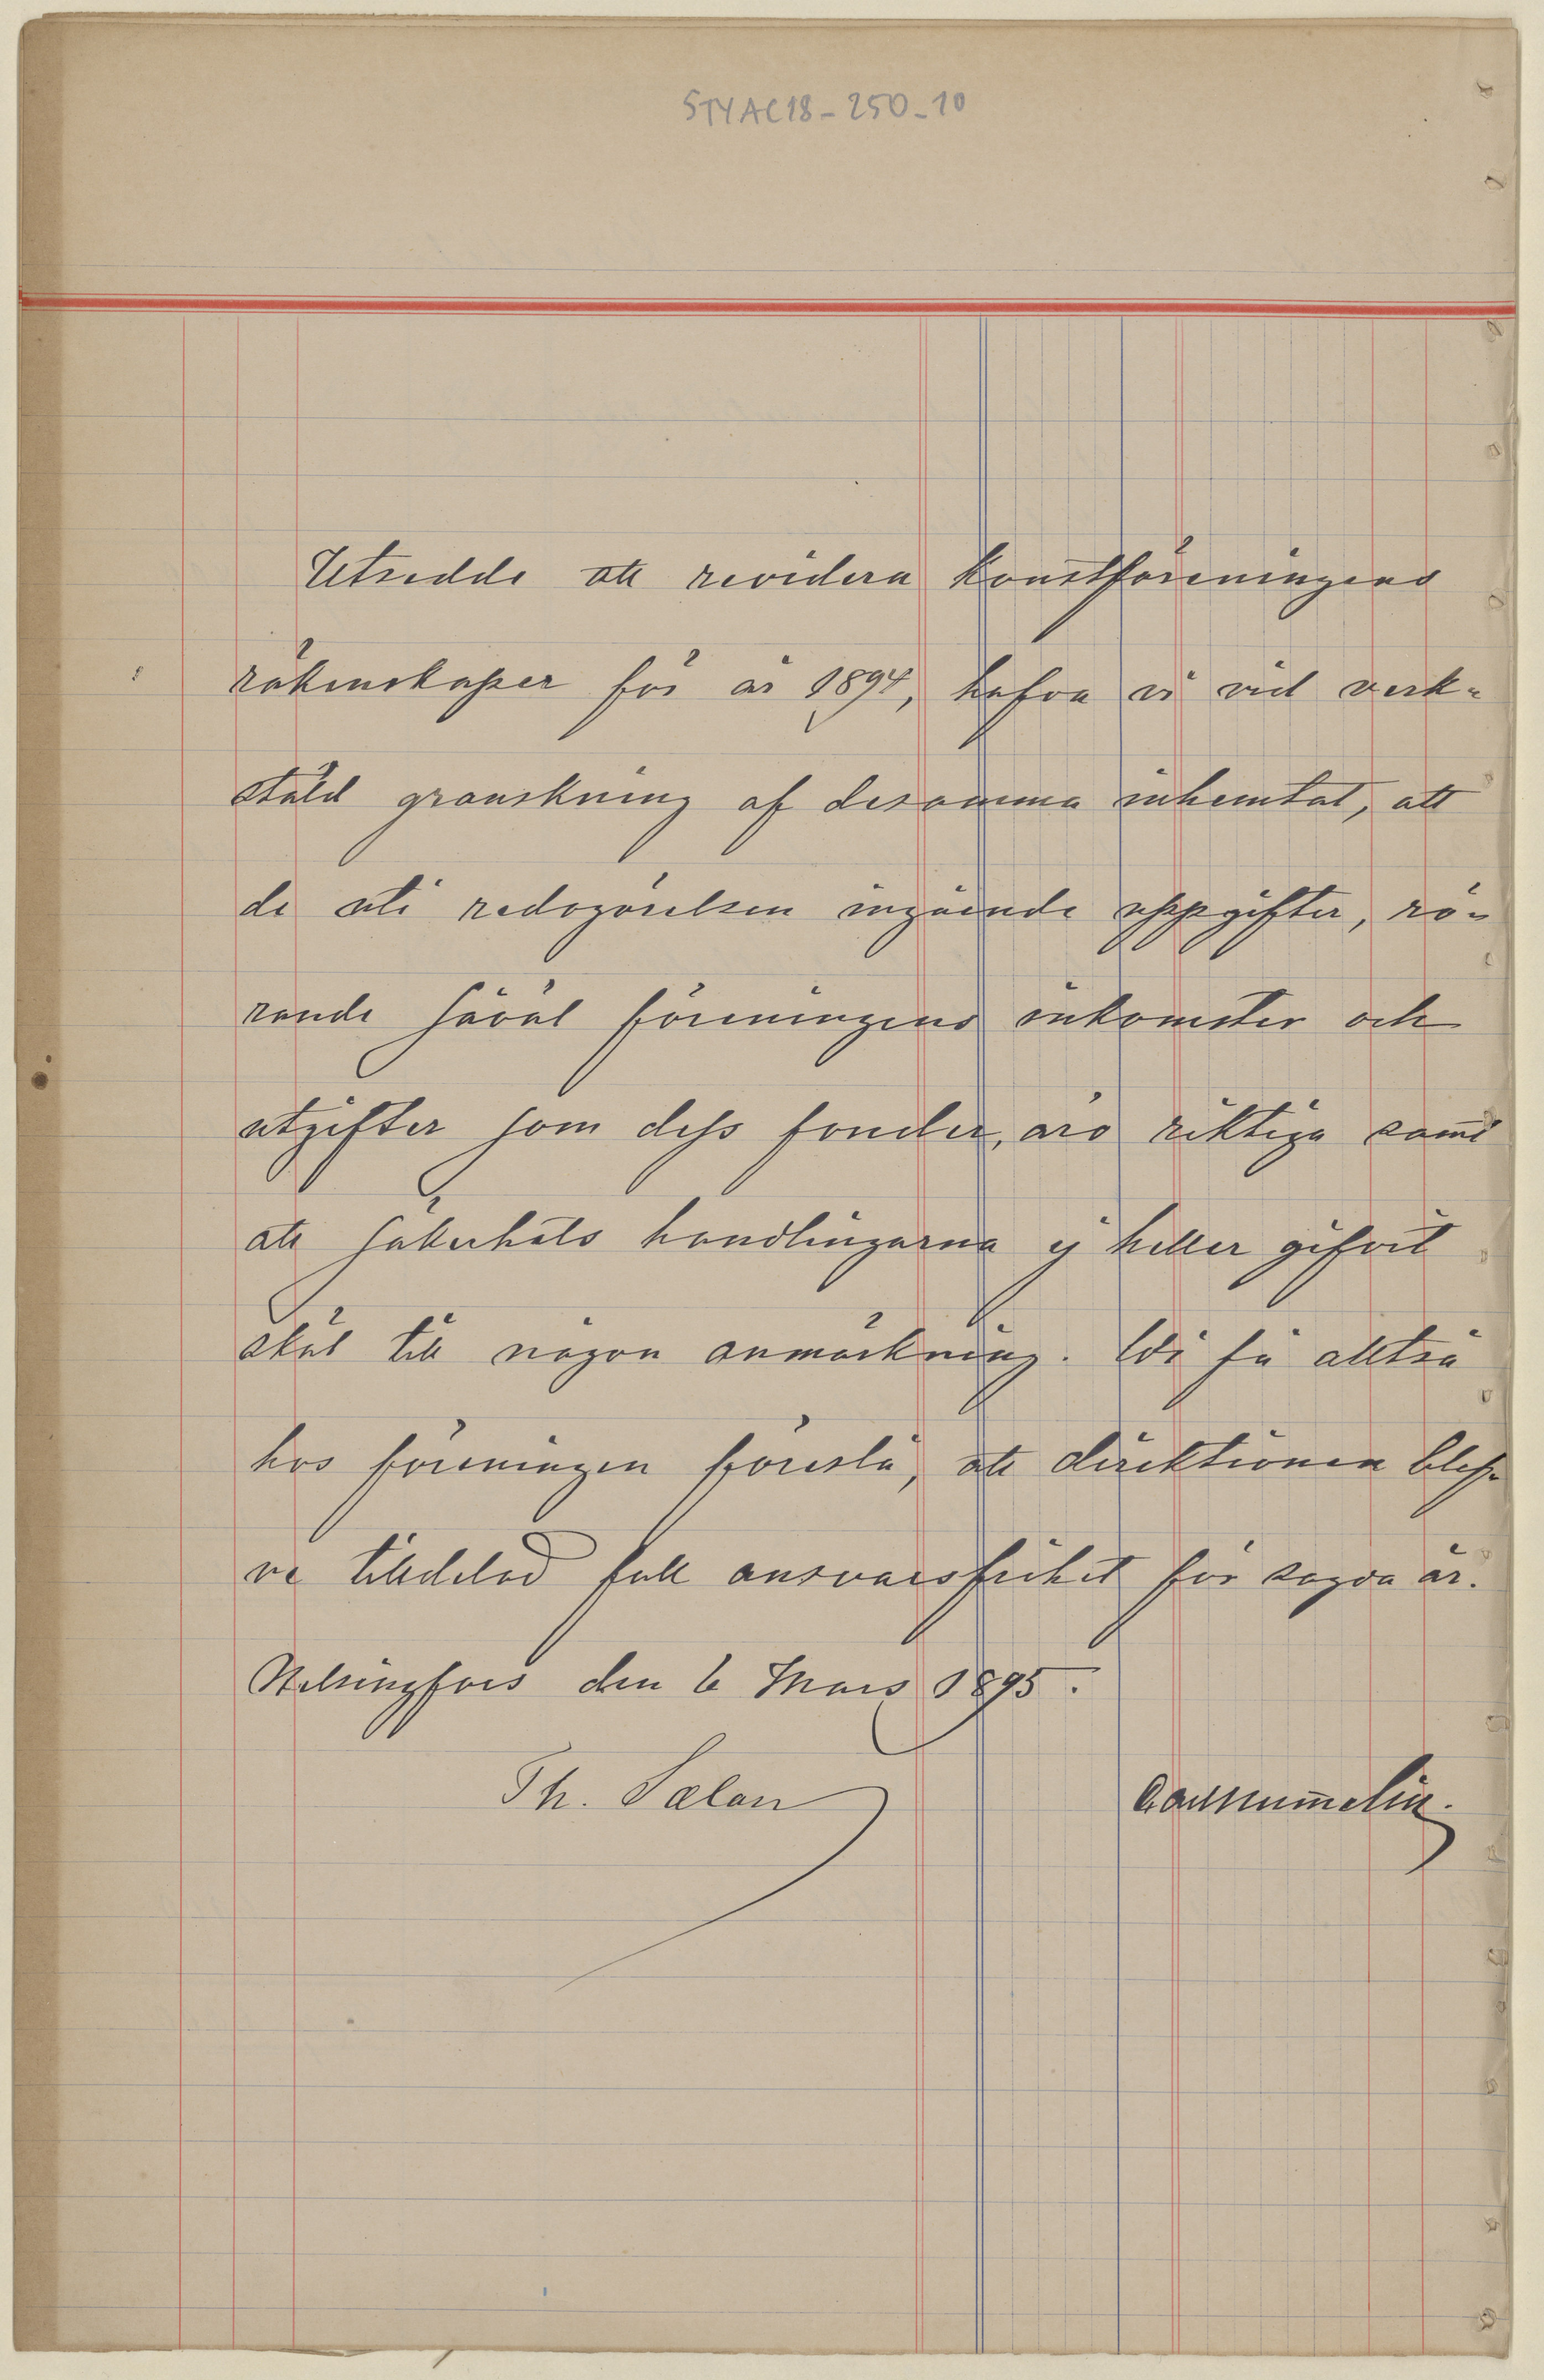 STYAC18-250-10
Utsedde att revidera Konstföreningens
räkenskaper för år 1894, hafva vi vid verk-
ställd granskning af desamma inhemtat, att
de uti redogörelsen ingående uppgifter, rö-
rande såväl föreningens inkomster och
utgifter som dess fonder, äro riktiga samt
att säkerhets handlingarna ej heller gifvit
skäl till någon anmärkning. Vi få alltså
hos föreningen föreslå, att direktionen blef-
ve tilldelad full ansvarsfrihet för sagda år.
Helsingfors den 6 Mars 1895.
Th. Sælan